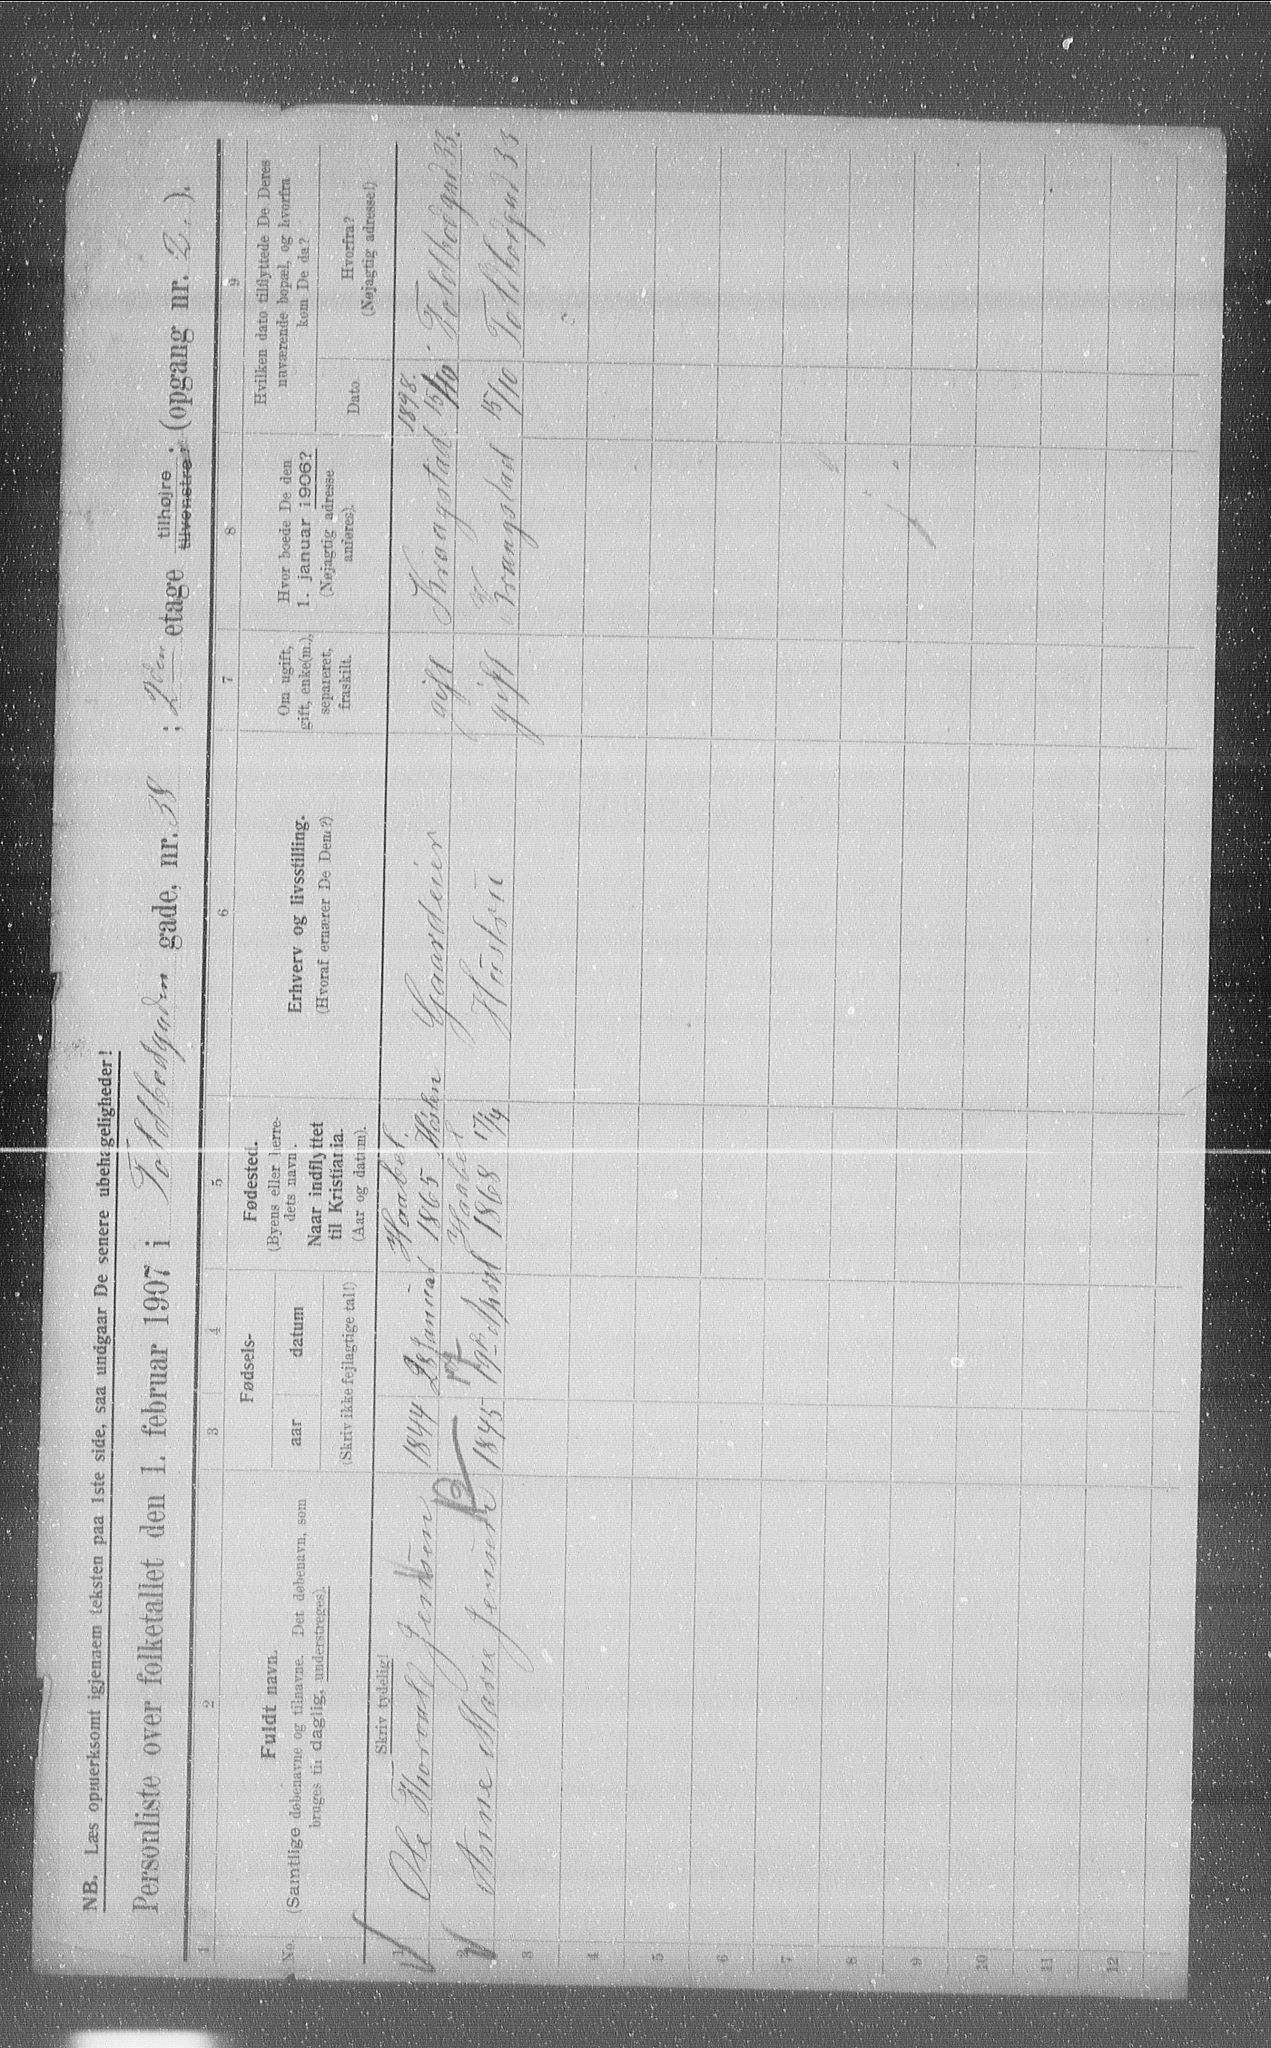 NB. Læs opmerksomt igjennem teksten paa 1ste side, saa undgaar De senere ubehageligheder!
Personliste over folketallet den 1. februar 1907 i Toldbodgaden gade, nr. 38 ; 2den etage tilhøjre tilvenstre . (opgang nr. 2.).
1 2 3 4 5 6 7 8 9
No.
Fuldt navn.
(Samtlige døbenavne og tilnavne. Det døbenavn, som
bruges til daglig, understreges).
Skriv tydelig!
Fødsels-
aar datum
(Skriv ikke fejlagtige tal!)
Fødested.
(Byens eller herre-
dets navn.
Naar indflyttet
til Kristiania.
(Aar og datum).
Erhverv og livsstilling.
(Hvoraf ernærer De Dem?)
Om ugift,
gift, enke(m.),
separeret,
fraskilt.
Hvor boede De den
1. januar 1906?
(Nøjagtig adresse
anføres).
Hvilken dato tilflyttede De Deres
nuværende bopæl, og hvorfra
kom De da?
Dato
Hvorfra?
(Nøjagtig adresse!)
1 Ole Thorvald Jensen 1844 28 Januar Haabøl 1865 Høsten Gaardeier gift Kraagstad 1898. 15/10 Toldbodgad 33.
2 Anne Marie Jensen 1845 19de April Haabøl 1868 17/4 Hustru gift Kraagstad 15/10 Toldbodgad 33
3
4
5
6
7
8
9
10
11
12